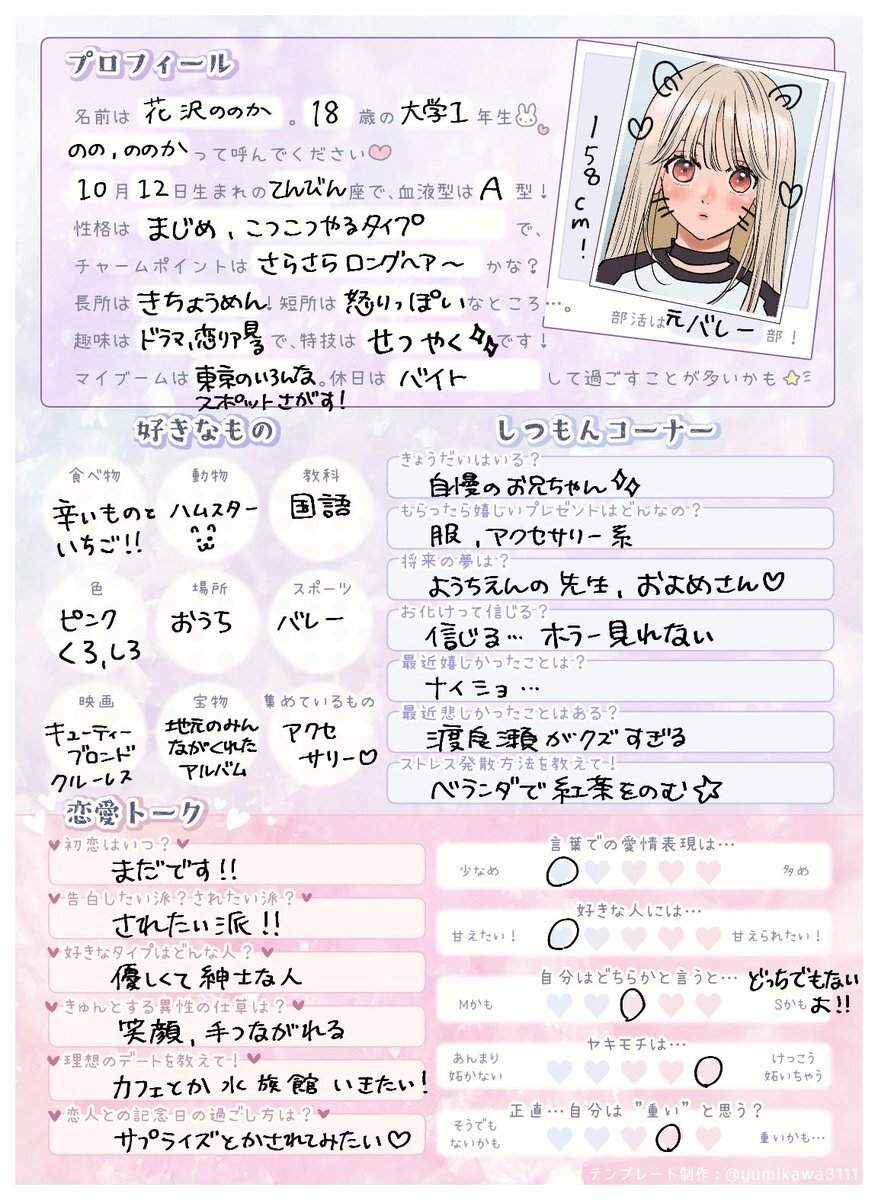 プロフィール
名前は 花沢ののか 。18 歳の 大学1 年生
のの,ののか って呼んでください
10月12日生まれのてんびん座で、血液型は A 型!
性格は まじめ、こつこつやるタイプ で、
チャームポイントは さらさらロングヘア〜 かな?
長所は きちょうめん! 短所は 怒りっぽい なところ…。
趣味は ドラマ、恋リア見る で、特技は せつやく です!
マイブームは 東京のいろんな 。休日は バイト して過ごすことが多いかも
スポットさがす!
158cm!
部活は 元バレー 部!
好きなもの
食べ物
辛いものと
いちご!!
動物
ハムスター
教科
国語
色
ピンク
くろ,しろ
場所
おうち
スポーツ
バレー
映画
キューティー
ブロンド
クルーレス
宝物
地元のみん
ながくれた
アルバム
集めているもの
アクセ
サリー♡
しつもんコーナー
きょうだいはいる?
自慢のお兄ちゃん
もらったら嬉しいプレゼントはどんなの?
服,アクセサリー系
将来の夢は?
ようちえんの先生,およめさん♡
お化けって信じる?
信じる… ホラー見れない
最近嬉しかったことは?
ナイショ…
最近悲しかったことはある?
渡良瀬がクズすぎる
ストレス発散方法を教えて!
ベランダで紅茶をのむ☆
恋愛トーク
♥初恋はいつ?♥
まだです!!
♥告白したい派?されたい派?♥
されたい派!!
♥好きなタイプはどんな人?♥
優しくて紳士な人
♥きゅんとする異性の仕草は?♥
笑顔,手つながれる
♥理想のデートを教えて!♥
カフェとか水族館いきたい!
♥恋人との記念日の過ごし方は?♥
サプライズとかされてみたい♡
言葉での愛情表現は…
少なめ
多め
好きな人には…
甘えたい!
甘えられたい!
自分はどちらかと言うと…
どっちでもない
よ!!
Mかも
Sかも
ヤキモチは…
あんまり
妬かない
けっこう
妬いちゃう
正直…自分は"重い"と思う?
そうでも
ないかも
重いかも…
テンプレート制作:@yumikawa3111